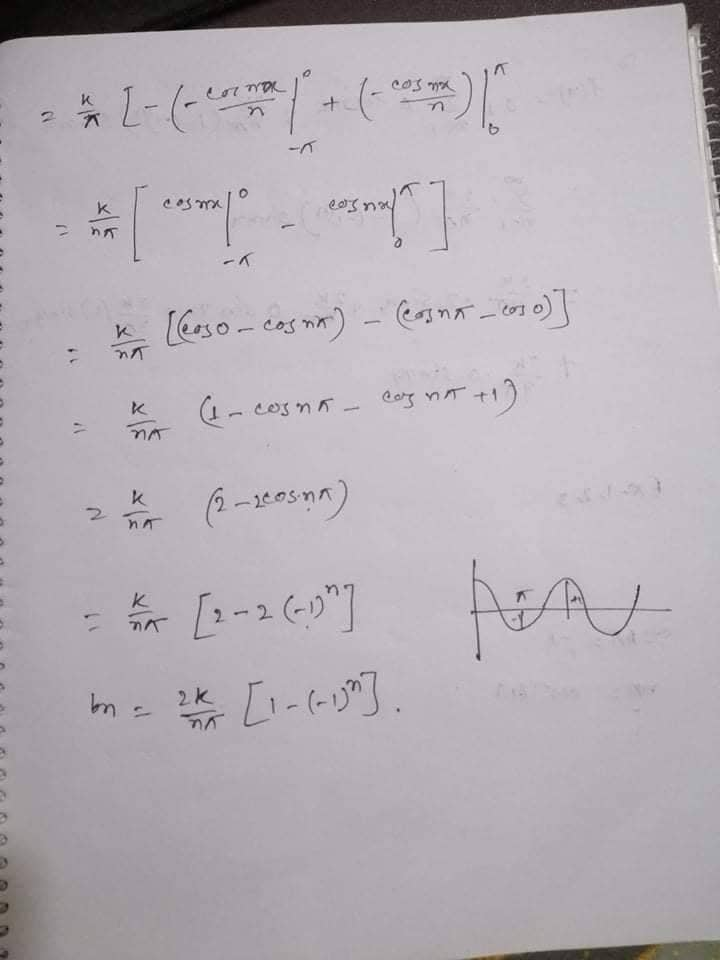 = k/π [ - (- cos nx/n |₋π⁰ + (- cos nx/n) |₀^π
= k/nπ [ cos nx |₋π⁰ - cos nx |₀^π ]
= k/nπ [(cos 0 - cos nπ) - (cos nπ - cos 0)]
= k/nπ (1 - cos nπ - cos nπ + 1)
= k/nπ (2 - 2cos nπ)
= k/nπ [2 - 2 (-1)ⁿ]
π
-1
+1
bn = 2k/nπ [1 - (-1)ⁿ].